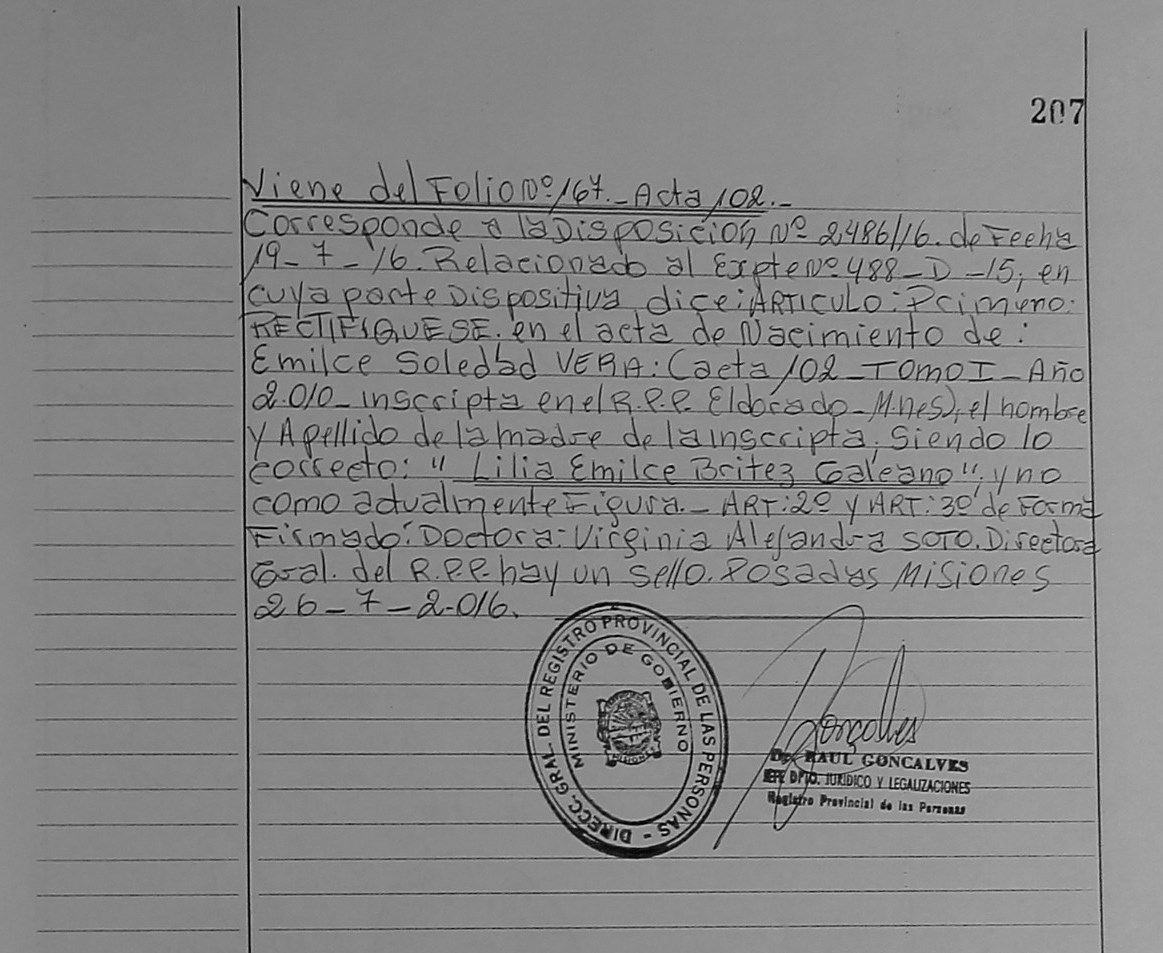 207
Viene del Folio Nº 167.- Acta 102.-
Corresponde a la Disposición Nº 2486/16. de Fecha
19-7-16. Relacionado al Expte Nº 488-D-15; en
cuya parte Dispositiva dice: ARTICULO: Primero:
RECTIFIQUESE. en el acta de Nacimiento de:
Emilce Soledad VERA: (acta 102-TOMO I-Año
2.010-inscripta en el R.P.P. Eldorado-M.nes), el nombre
y Apellido de la madre de la inscripta, Siendo lo
correcto: "Lilia Emilce Britez Galeano", y no
como actualmente Figura.- ART: 2º y ART: 3º de Forma
Firmado: Doctora: Virginia Alejandra SOTO. Directora
Gral. del R.P.P. hay un sello. Posadas Misiones
26-7-2.016.
DIRECC. GRAL. DEL REGISTRO PROVINCIAL DE LAS PERSONAS -
MINISTERIO DE GOBIERNO
MISIONES
Gonçalves
Dr. RAUL GONCALVES
JEFE DPTO. JURIDICO Y LEGALIZACIONES
Registro Provincial de las Personas